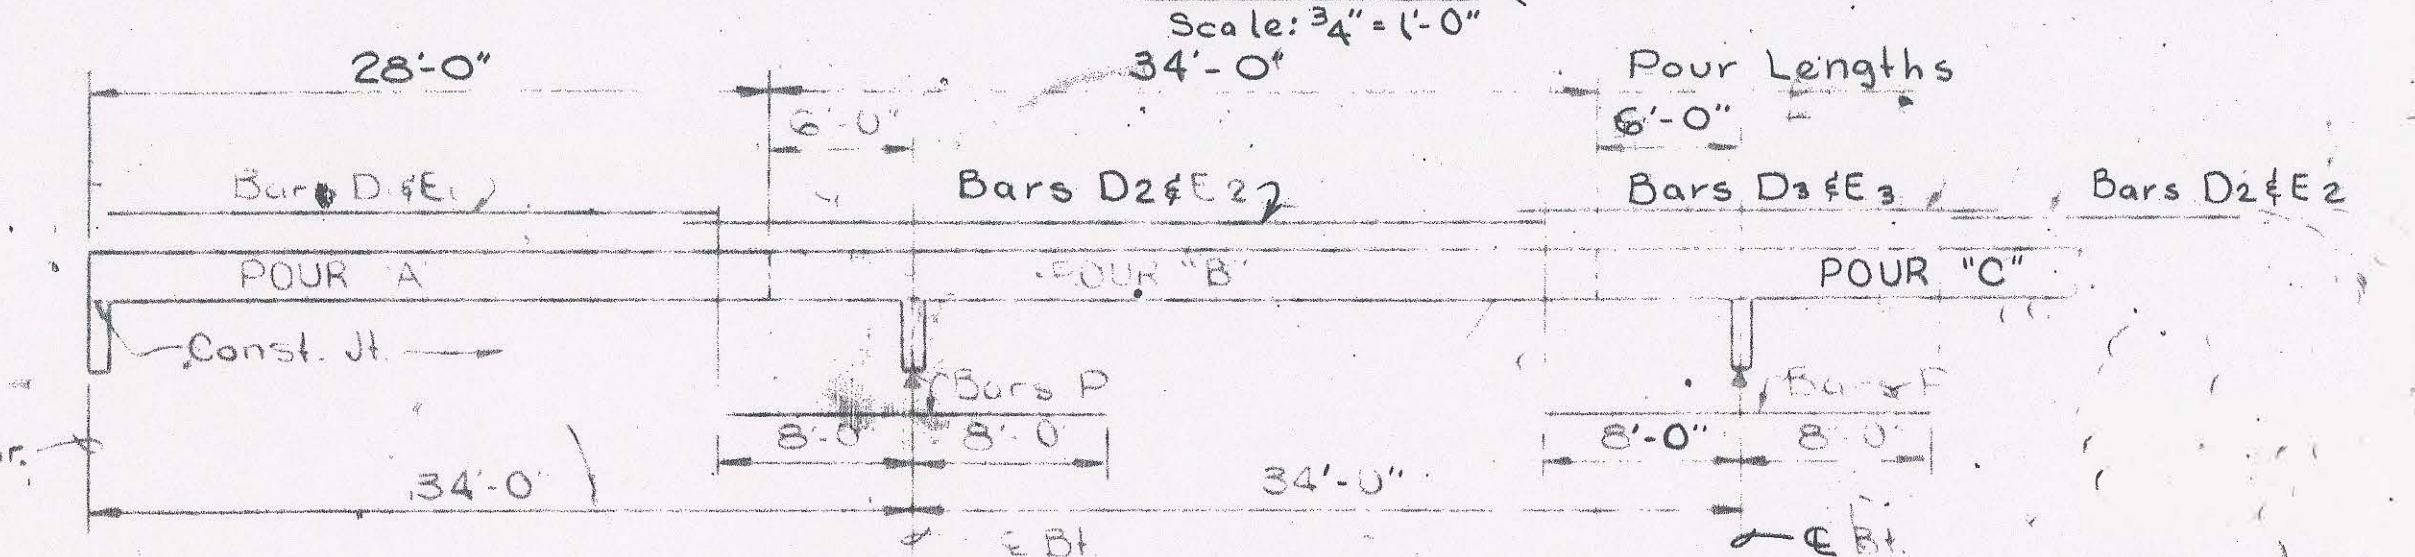 Scale: 3/4" = 1'-0"
28'-0" 34'-0" Pour Lengths
6'-0" 6'-0"
Bars D1 & E1 Bars D2 & E2 Bars D3 & E3 Bars D2 & E2
POUR "A" POUR "B" POUR "C"
Const. Jt.
Bars P Bars
8'-0" 8'-0" 8'-0" 8'-0"
34'-0" 34'-0"
℄ Bt. ℄ Bt.